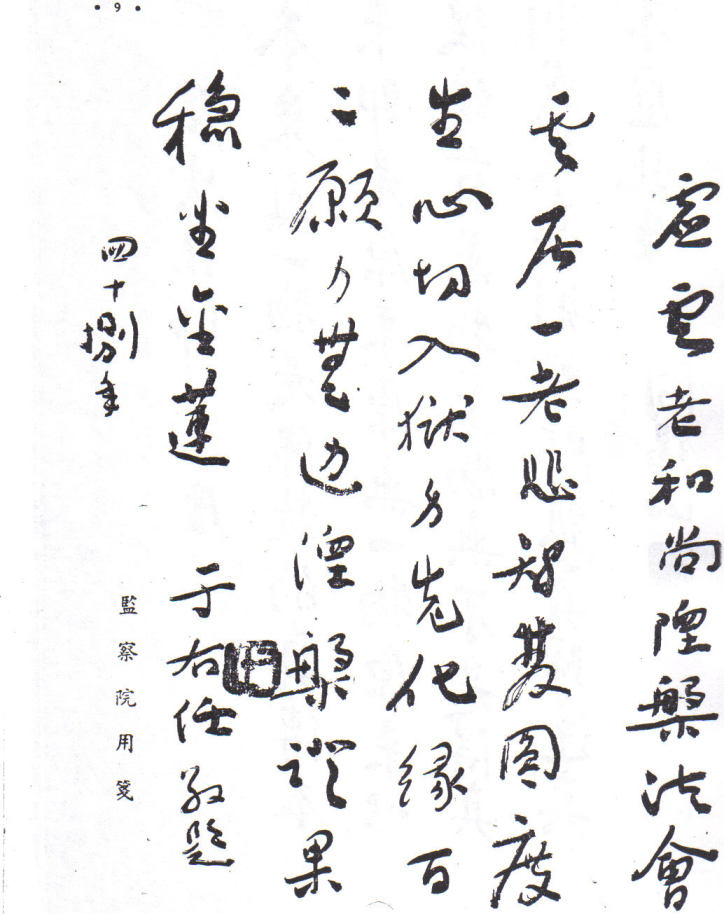 · 9 ·
虛雲老和尚涅槃法會
雲居一老悲智雙圓度
生心切入獄身先化緣百
二願力無边涅槃證果
穩坐金蓮 于右任敬題
四十捌年
監察院用箋